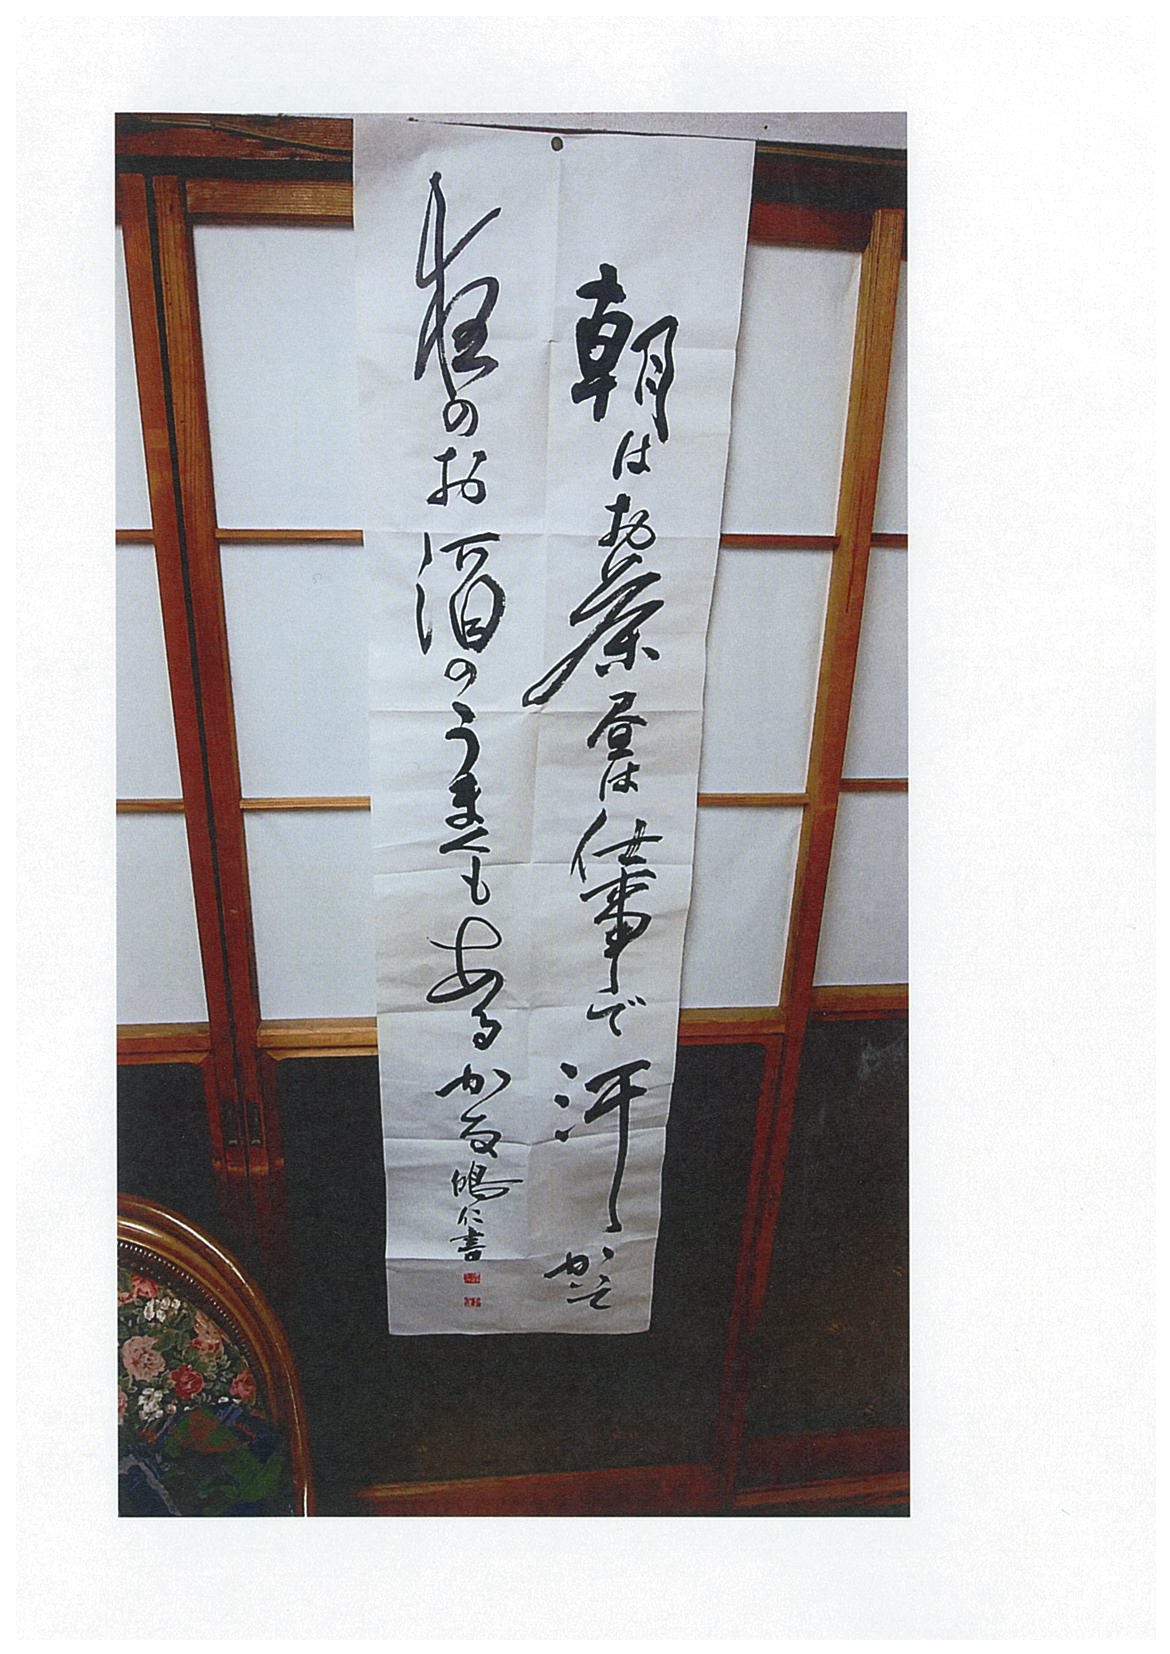 朝はお茶昼は仕事で汗かいて
夜のお酒のうまくもあるかな
鳴仁書